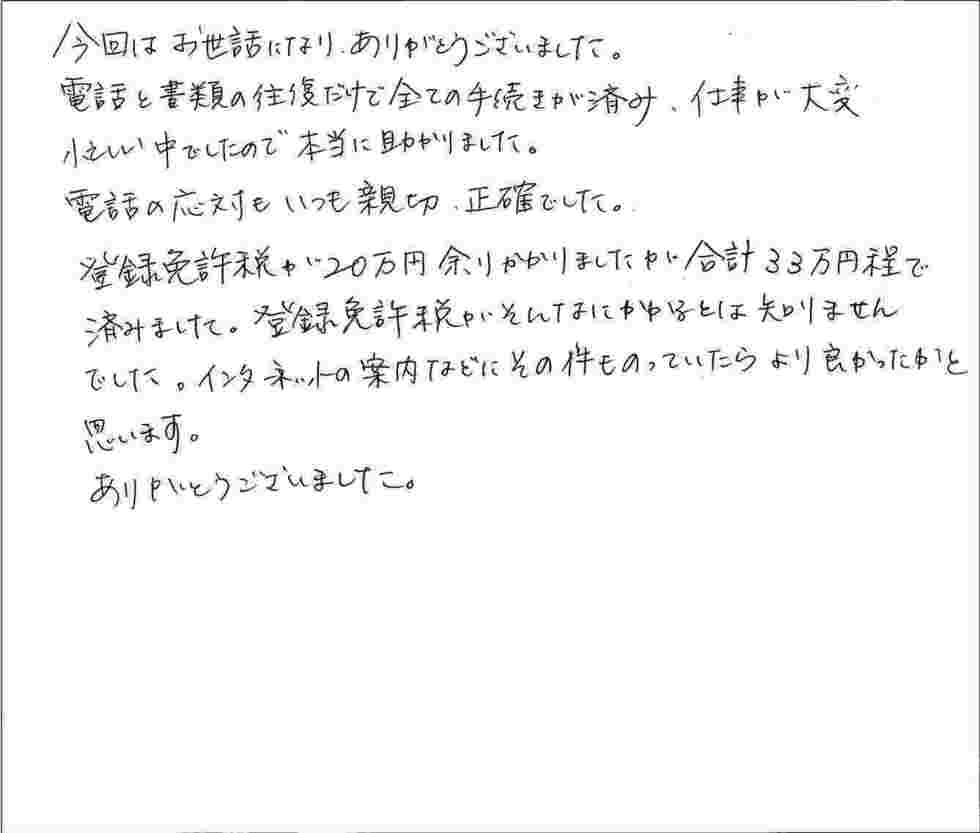 今回はお世話になり、ありがとうございました。
電話と書類の往復だけで全ての手続きが済み、仕事が大変
忙しい中でしたので本当に助かりました。
電話の応対もいつも親切、正確でした。
登録免許税が20万円余りかかりましたが合計33万円程で
済みました。登録免許税がそんなにかかるとは知りません
でした。インターネットの案内などにその件ものっていたらより良かったかと
思います。
ありがとうございました。